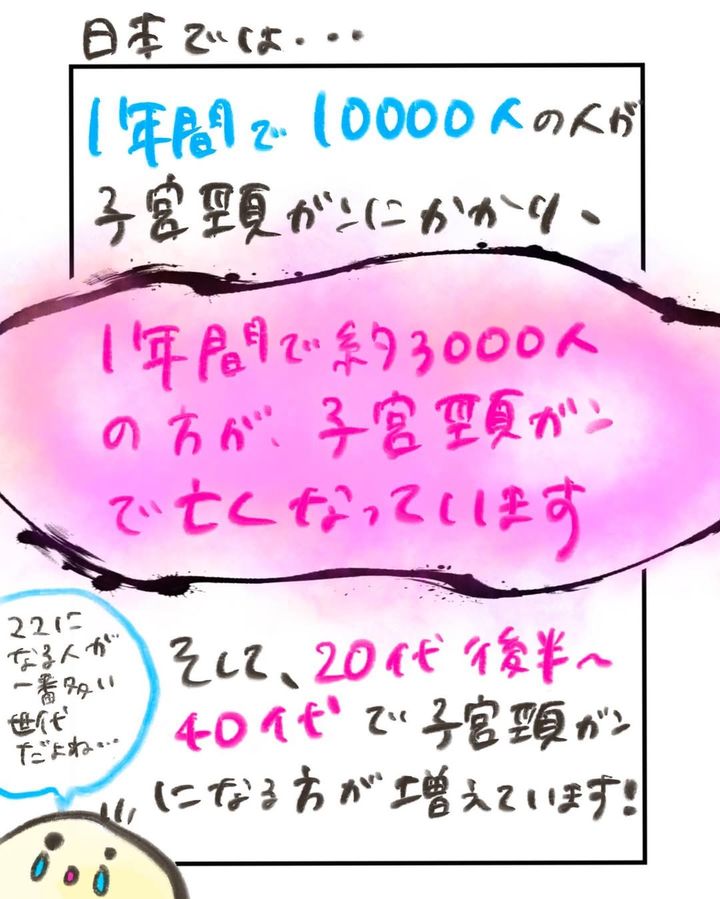 日本では・・・
1年間で10000人の人が
子宮頸ガンにかかり、
1年間で約3000人
の方が、子宮頸ガン
で亡くなっています
そして、20代後半〜
40代で子宮頸ガン
になる方が増えています!
ママに
なる人が
一番多い
世代
だよね…